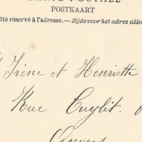 POSTKAART
côté réservé à l'adresse. — Zijde voor het adres alle
Irène et Henriette
Rue Cuylit
Anvers